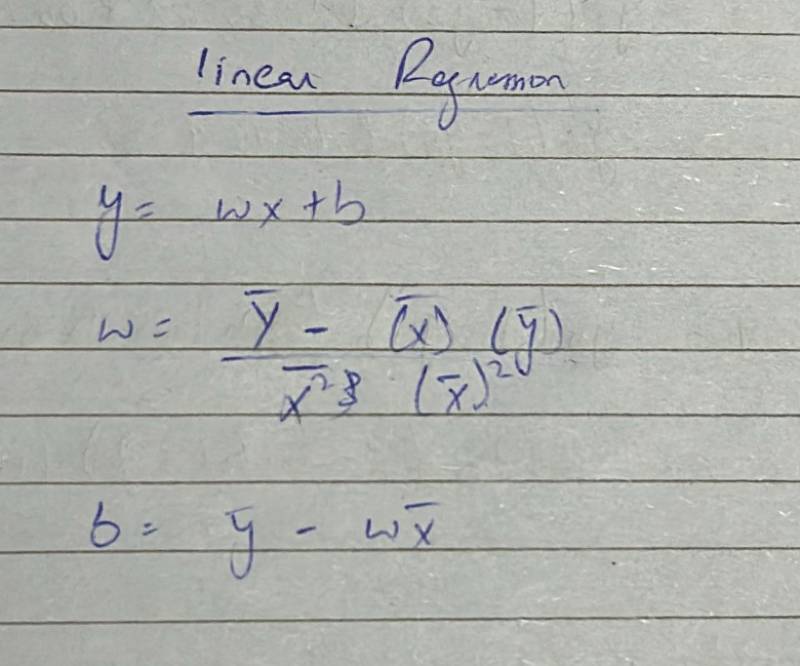 linear Regression
y = wx + b
w = Y̅ - (x̅) (y̅)
x̅² (x̅)²
b = y̅ - wx̅